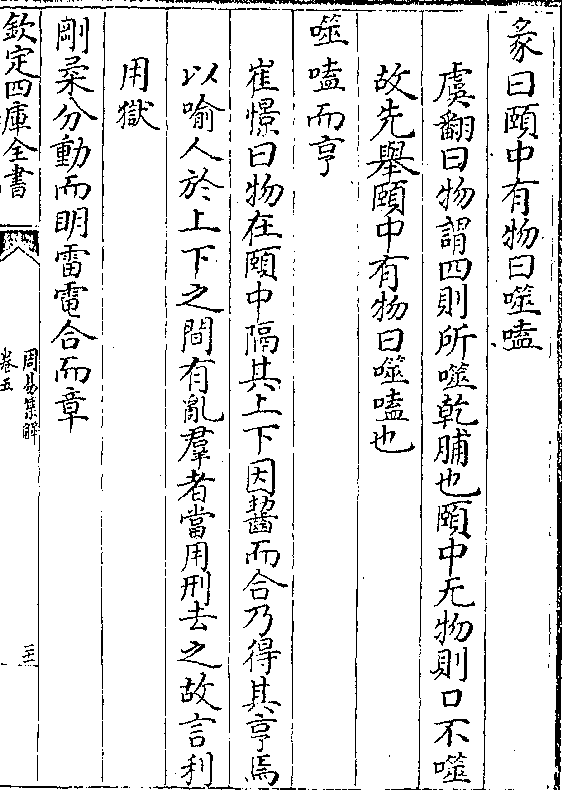 彖曰頤中有物曰噬嗑
虞翻曰物謂四則所噬乾脯也頤中无物則口不噬
故先舉頤中有物曰噬嗑也
噬嗑而亨
崔憬曰物在頤中隔其上下因齧而合乃得其亨焉
以喻人於上下之間有亂羣者當用刑去之故言利
用獄
剛柔分動而明雷電合而章
欽定四庫全書
周易集解
卷五
二十三